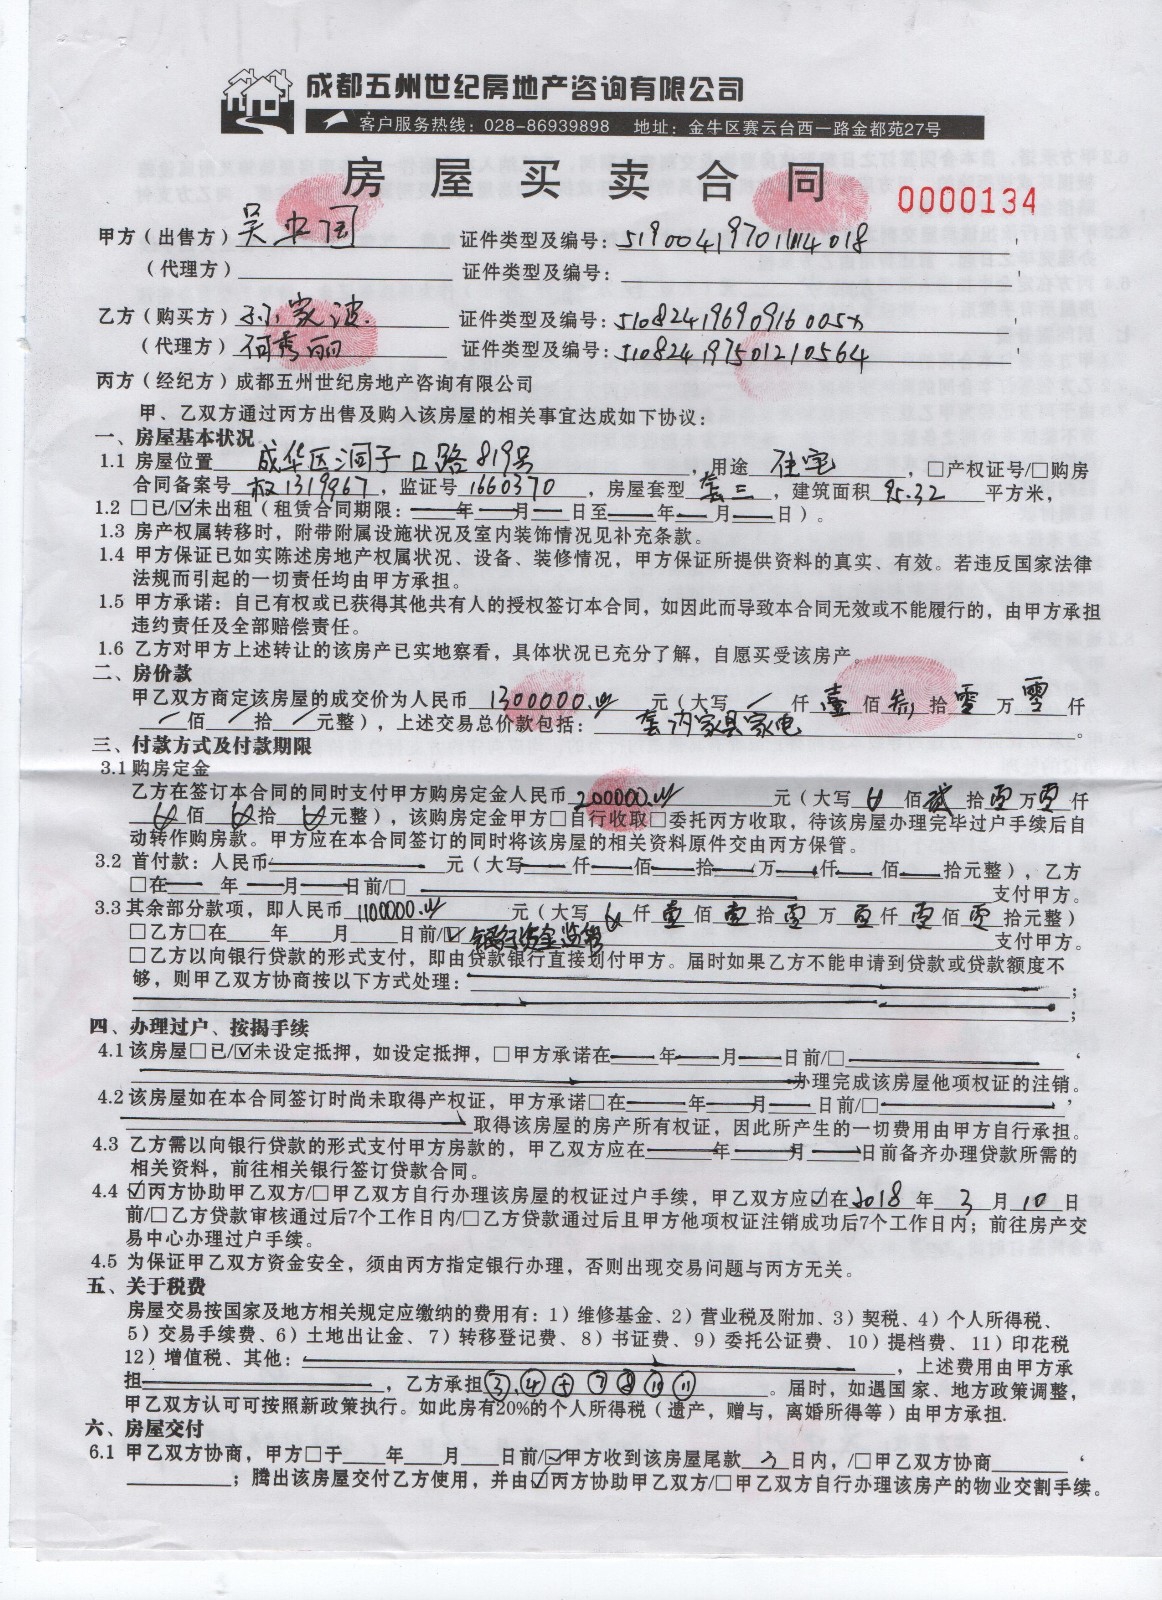 成都五州世纪房地产咨询有限公司
客户服务热线：028-86939898 地址：金牛区赛云台西一路金都苑27号
房屋买卖合同 0000134
甲方（出售方）吴中国 证件类型及编号：519004197011114018
（代理方） 证件类型及编号：
乙方（购买方）孙家波 证件类型及编号：51082419690916005x
（代理方）何秀丽 证件类型及编号：510824197501210564
丙方（经纪方）成都五州世纪房地产咨询有限公司
甲、乙双方通过丙方出售及购入该房屋的相关事宜达成如下协议：
一、房屋基本状况
1.1 房屋位置 成华区洞子口路819号，用途 住宅，□产权证号/□购房
合同备案号 权1319967，监证号 1660370，房屋套型 套三，建筑面积 95.32 平方米，
1.2 □已/☑未出租（租赁合同期限：——年——月——日至——年——月——日）。
1.3 房产权属转移时，附带附属设施状况及室内装饰情况见补充条款。
1.4 甲方保证已如实陈述房地产权属状况、设备、装修情况，甲方保证所提供资料的真实、有效。若违反国家法律
法规而引起的一切责任均由甲方承担。
1.5 甲方承诺：自己有权或已获得其他共有人的授权签订本合同，如因此而导致本合同无效或不能履行的，由甲方承担
违约责任及全部赔偿责任。
1.6 乙方对甲方上述转让的该房产已实地察看，具体状况已充分了解，自愿买受该房产。
二、房价款
甲乙双方商定该房屋的成交价为人民币 1300000.00 元（大写 / 仟 壹 佰 叁 拾 零 万 零 仟
/ 佰 / 拾 / 元整），上述交易总价款包括： 套内家具家电 。
三、付款方式及付款期限
3.1购房定金
乙方在签订本合同的同时支付甲方购房定金人民币 200000.00 元（大写 佰 贰 拾 零 万 零 仟
佰 拾 元整），该购房定金甲方□自行收取□委托丙方收取，待该房屋办理完毕过户手续后自
动转作购房款。甲方应在本合同签订的同时将该房屋的相关资料原件交由丙方保管。
3.2 首付款：人民币—— 元（大写——仟——佰——拾——万——仟——佰——拾元整），乙方
□在——年——月——日前/□—— 支付甲方。
3.3其余部分款项，即人民币 1100000.00 元（大写 仟 壹 佰 壹 拾 零 万 零 仟 零 佰 零 拾元整）
□乙方□在 年 月 日前/☑ 银行资金监管 支付甲方。
□乙方以向银行贷款的形式支付，即由贷款银行直接划付甲方。届时如果乙方不能申请到贷款或贷款额度不
够，则甲乙双方协商按以下方式处理：——；
——；
四、办理过户、按揭手续
4.1该房屋□已/☑未设定抵押，如设定抵押，□甲方承诺在——年——月——日前/□——，
——办理完成该房屋他项权证的注销。
4.2该房屋如在本合同签订时尚未取得产权证，甲方承诺□在——年——月——日前/□——，
——取得该房屋的房产所有权证，因此所产生的一切费用由甲方自行承担。
4.3 乙方需以向银行贷款的形式支付甲方房款的，甲乙双方应在——年——月——日前备齐办理贷款所需的
相关资料，前往相关银行签订贷款合同。
4.4 ☑丙方协助甲乙双方/□甲乙双方自行办理该房屋的权证过户手续，甲乙双方应☑在 2018 年 3 月 10 日
前/□乙方贷款审核通过后7个工作日内/□乙方贷款通过后且甲方他项权证注销成功后7个工作日内；前往房产交
易中心办理过户手续。
4.5 为保证甲乙双方资金安全，须由丙方指定银行办理，否则出现交易问题与丙方无关。
五、关于税费
房屋交易按国家及地方相关规定应缴纳的费用有：1）维修基金、2）营业税及附加、3）契税、4）个人所得税、
5）交易手续费、6）土地出让金、7）转移登记费、8）书证费、9）委托公证费、10）提档费、11）印花税
12）增值税、其他：——，上述费用由甲方承
担——，乙方承担③、④⑤⑦⑧⑩⑪。届时，如遇国家、地方政策调整，
甲乙双方认可可按照新政策执行。如此房有20%的个人所得税（遗产，赠与，离婚所得等）由甲方承担.
六、房屋交付
6.1 甲乙双方协商，甲方□于 年 月 日前/☑甲方收到该房屋尾款 3 日内，/□甲乙双方协商 ，
；腾出该房屋交付乙方使用，并由☑丙方协助甲乙双方/□甲乙双方自行办理该房产的物业交割手续。